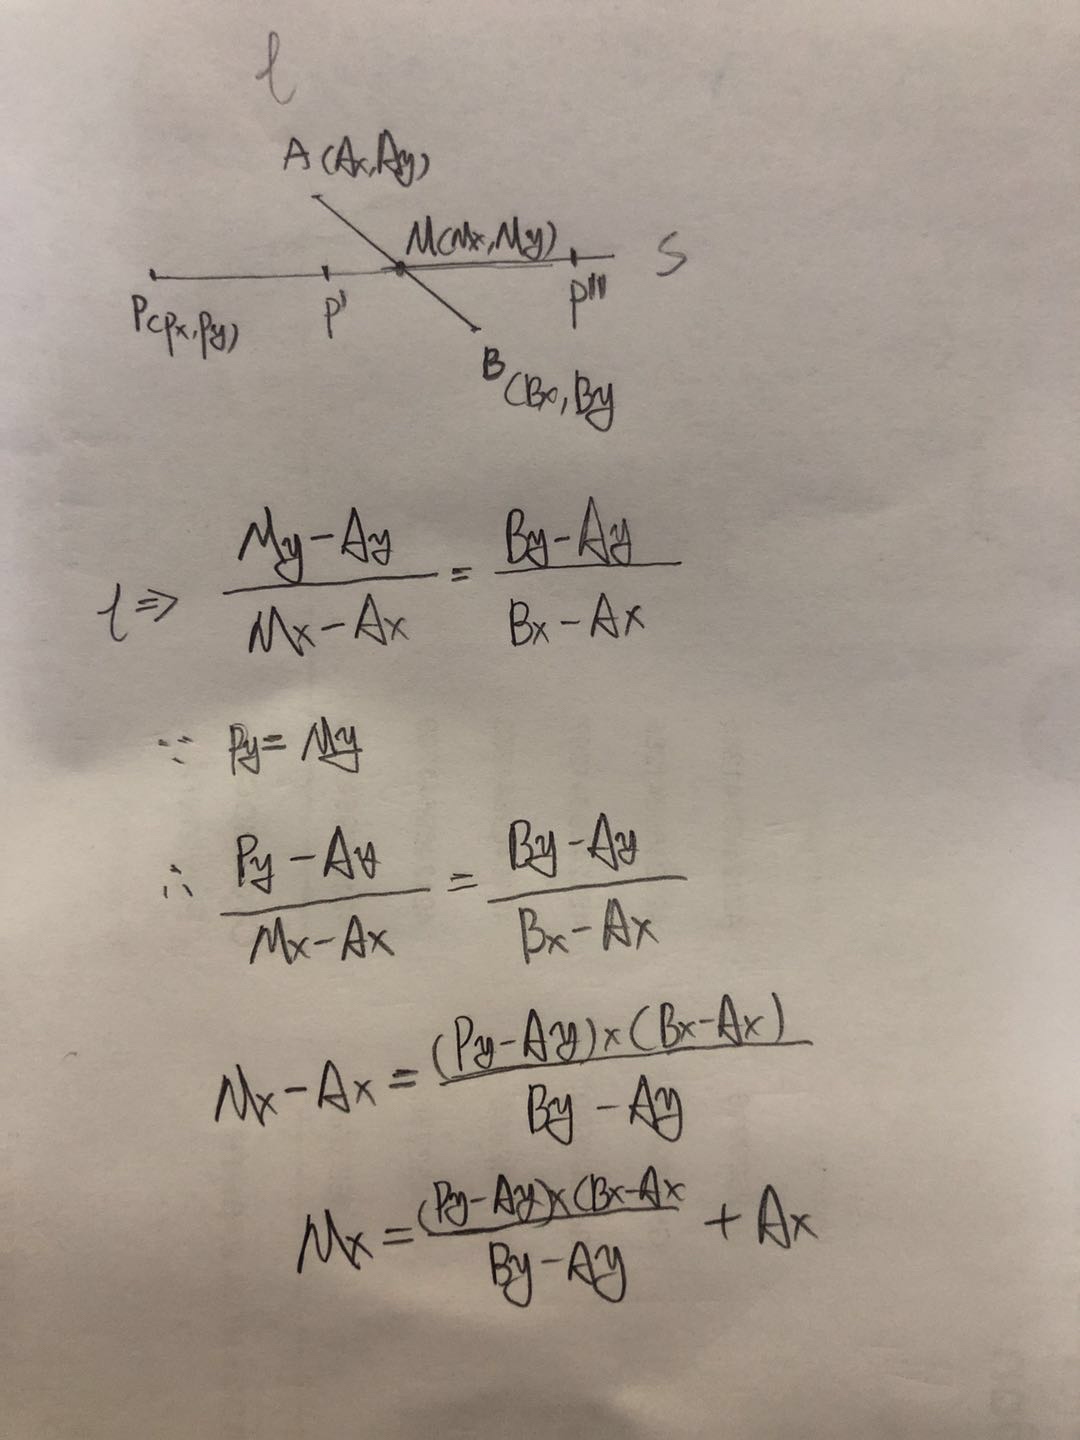 l
A (Ax, Ay)
M(Mx, My)
S
P(Px, Py)
P'
P'''
B (Bx, By
l ⇒ (My - Ay)/(Mx - Ax) = (By - Ay)/(Bx - Ax)
∵ Py = My
∴ (Py - Ay)/(Mx - Ax) = (By - Ay)/(Bx - Ax)
Mx - Ax = (Py - Ay) × (Bx - Ax)/(By - Ay)
Mx = (Py - Ay) × (Bx - Ax/(By - Ay) + Ax